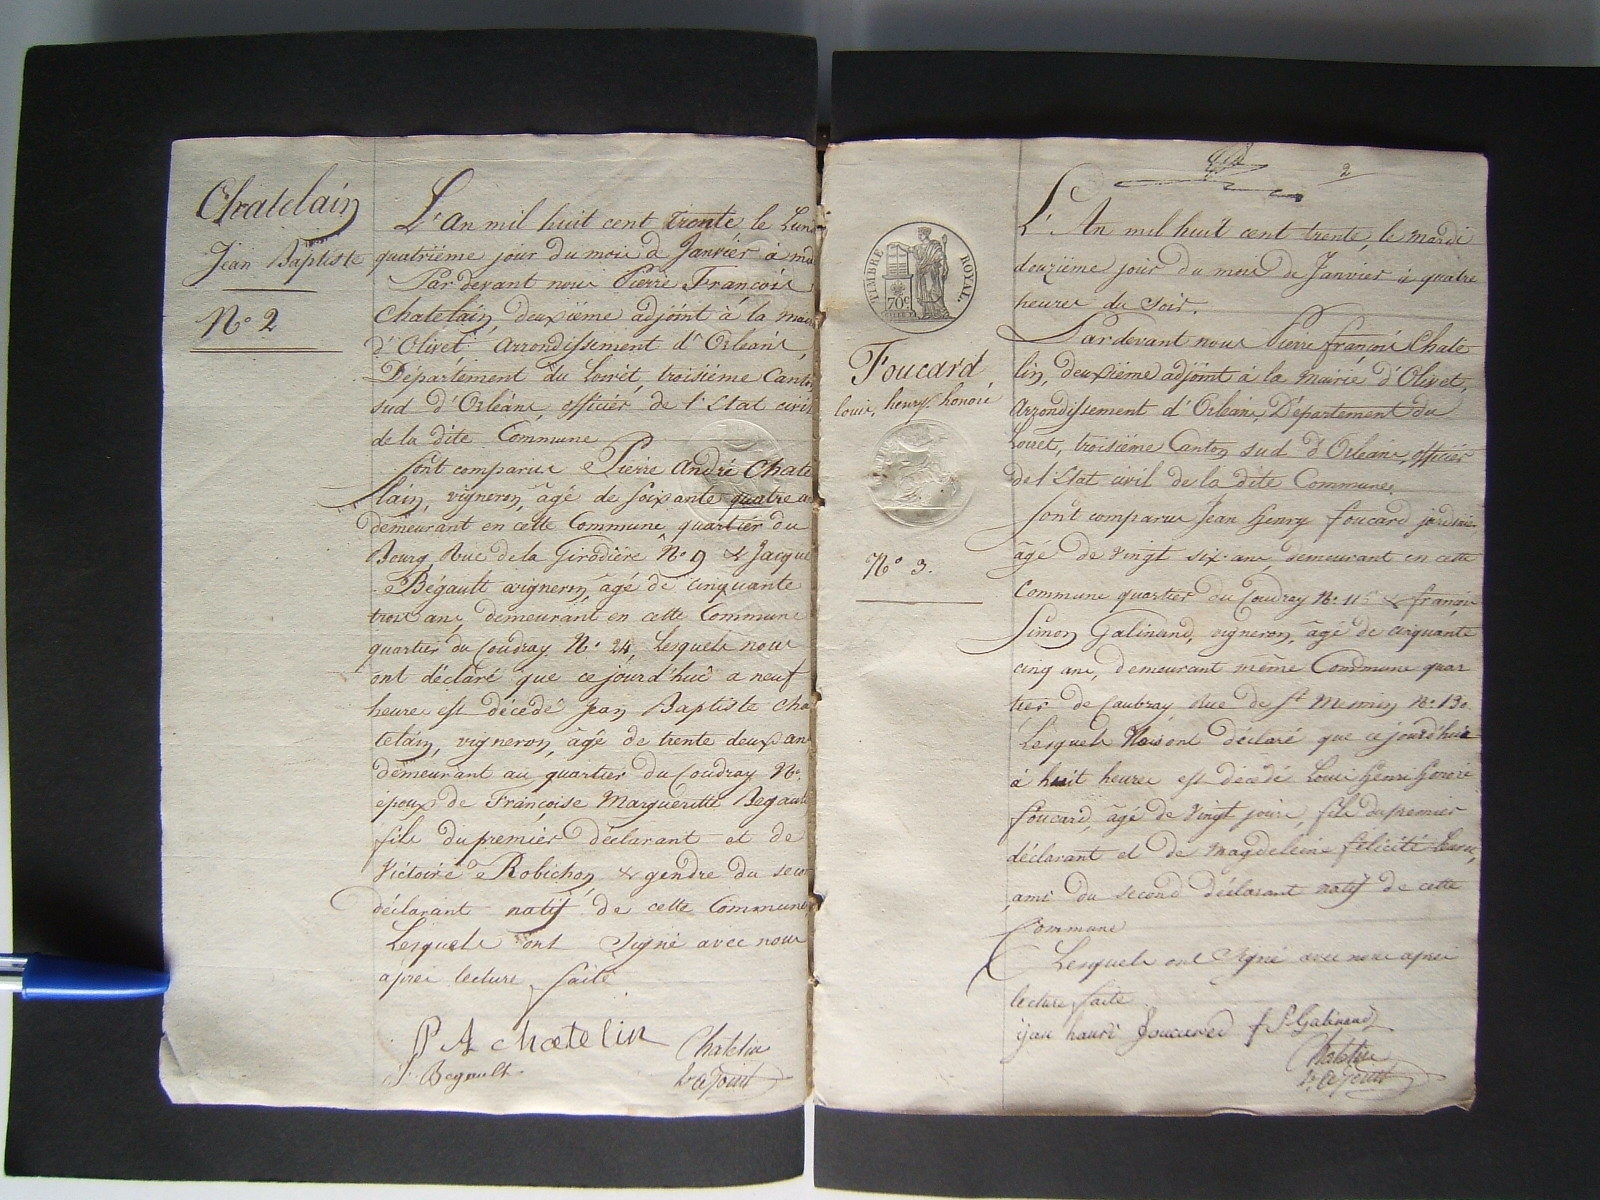 Chatelain
Jean Baptiste
N° 2
L'an mil huit cent trente le Lun
quatriëme jour du mois d Janvier à mi
Par devant nous Pierre François
Chatelain, deuxiëme adjoint à la mair
d'Olivet arrondissement d'Orleans,
Département du Loiret, troisiëme Canton
sud d'Orléans, officier de l'Etat civil
de la dite Commune
Sont comparus Pierre André Chate
lain, vigneron, âgé de soixante quatre an
demeurant en cette Commune, quartier du
Bourg, Rue de la Girodiere N° 9 & Jacque
Bégault vigneron, âgé de cinquante
trois ans, demeurant en cette Commune
quartier du Coudray N° 24, Lesquels nous
ont déclaré que ce jourd'hui a neuf
heures est décédé Jean Baptiste Cha
telain, vigneron, âgé de trente deux an
demeurant au quartier du Coudray N°.
époux de Françoise Margueritte Begault
fils du premier déclarant et de
Victoire Robichon & gendre du seco
déclarant natif de cette Commune
Lesquels ont Signé avec nous
après lecture faite
P A chatelin
J. Begault
Chatelin
adjoint
2
L'An mil huit cent trente, le mardi
douziëme jour du mois de Janvier à quatre
heures du Soir.
TIMBRE ROYAL.
70c
Foucard
louis, henry, honoré
N° 3.
Pardevant nous Pierre françois Chate
lin, deuxiëme adjoint à la mairie d'Olivet,
Arrondissement d'Orleans, Département du
Loiret, troisiëme Canton sud d'Orleans, officier
de l'Etat civil de la dite Commune.
Sont comparus Jean henry foucard jardinier
âgé de vingt six ans, demeurant en cette
Commune quartier du Coudray N° 115 & françois
Simon Galinand, vigneron, âgé de cinquante
cinq ans, demeurant même Commune quar
tier de Caubray Rue de St Mesmin N° 130
Lesquels Nous ont déclaré que ce jourd'hui
à huit heures est décédé Louis henri honoré
foucard, âgé de Vingt jours, fils du premier
déclarant et de Magdeleine félicité
ami du second déclarant natif de cette
Commune
Lesquels ont Signé avec nous après
lecture faite.
jean hanri foucared f S Galinand
Chatelin
adjoint